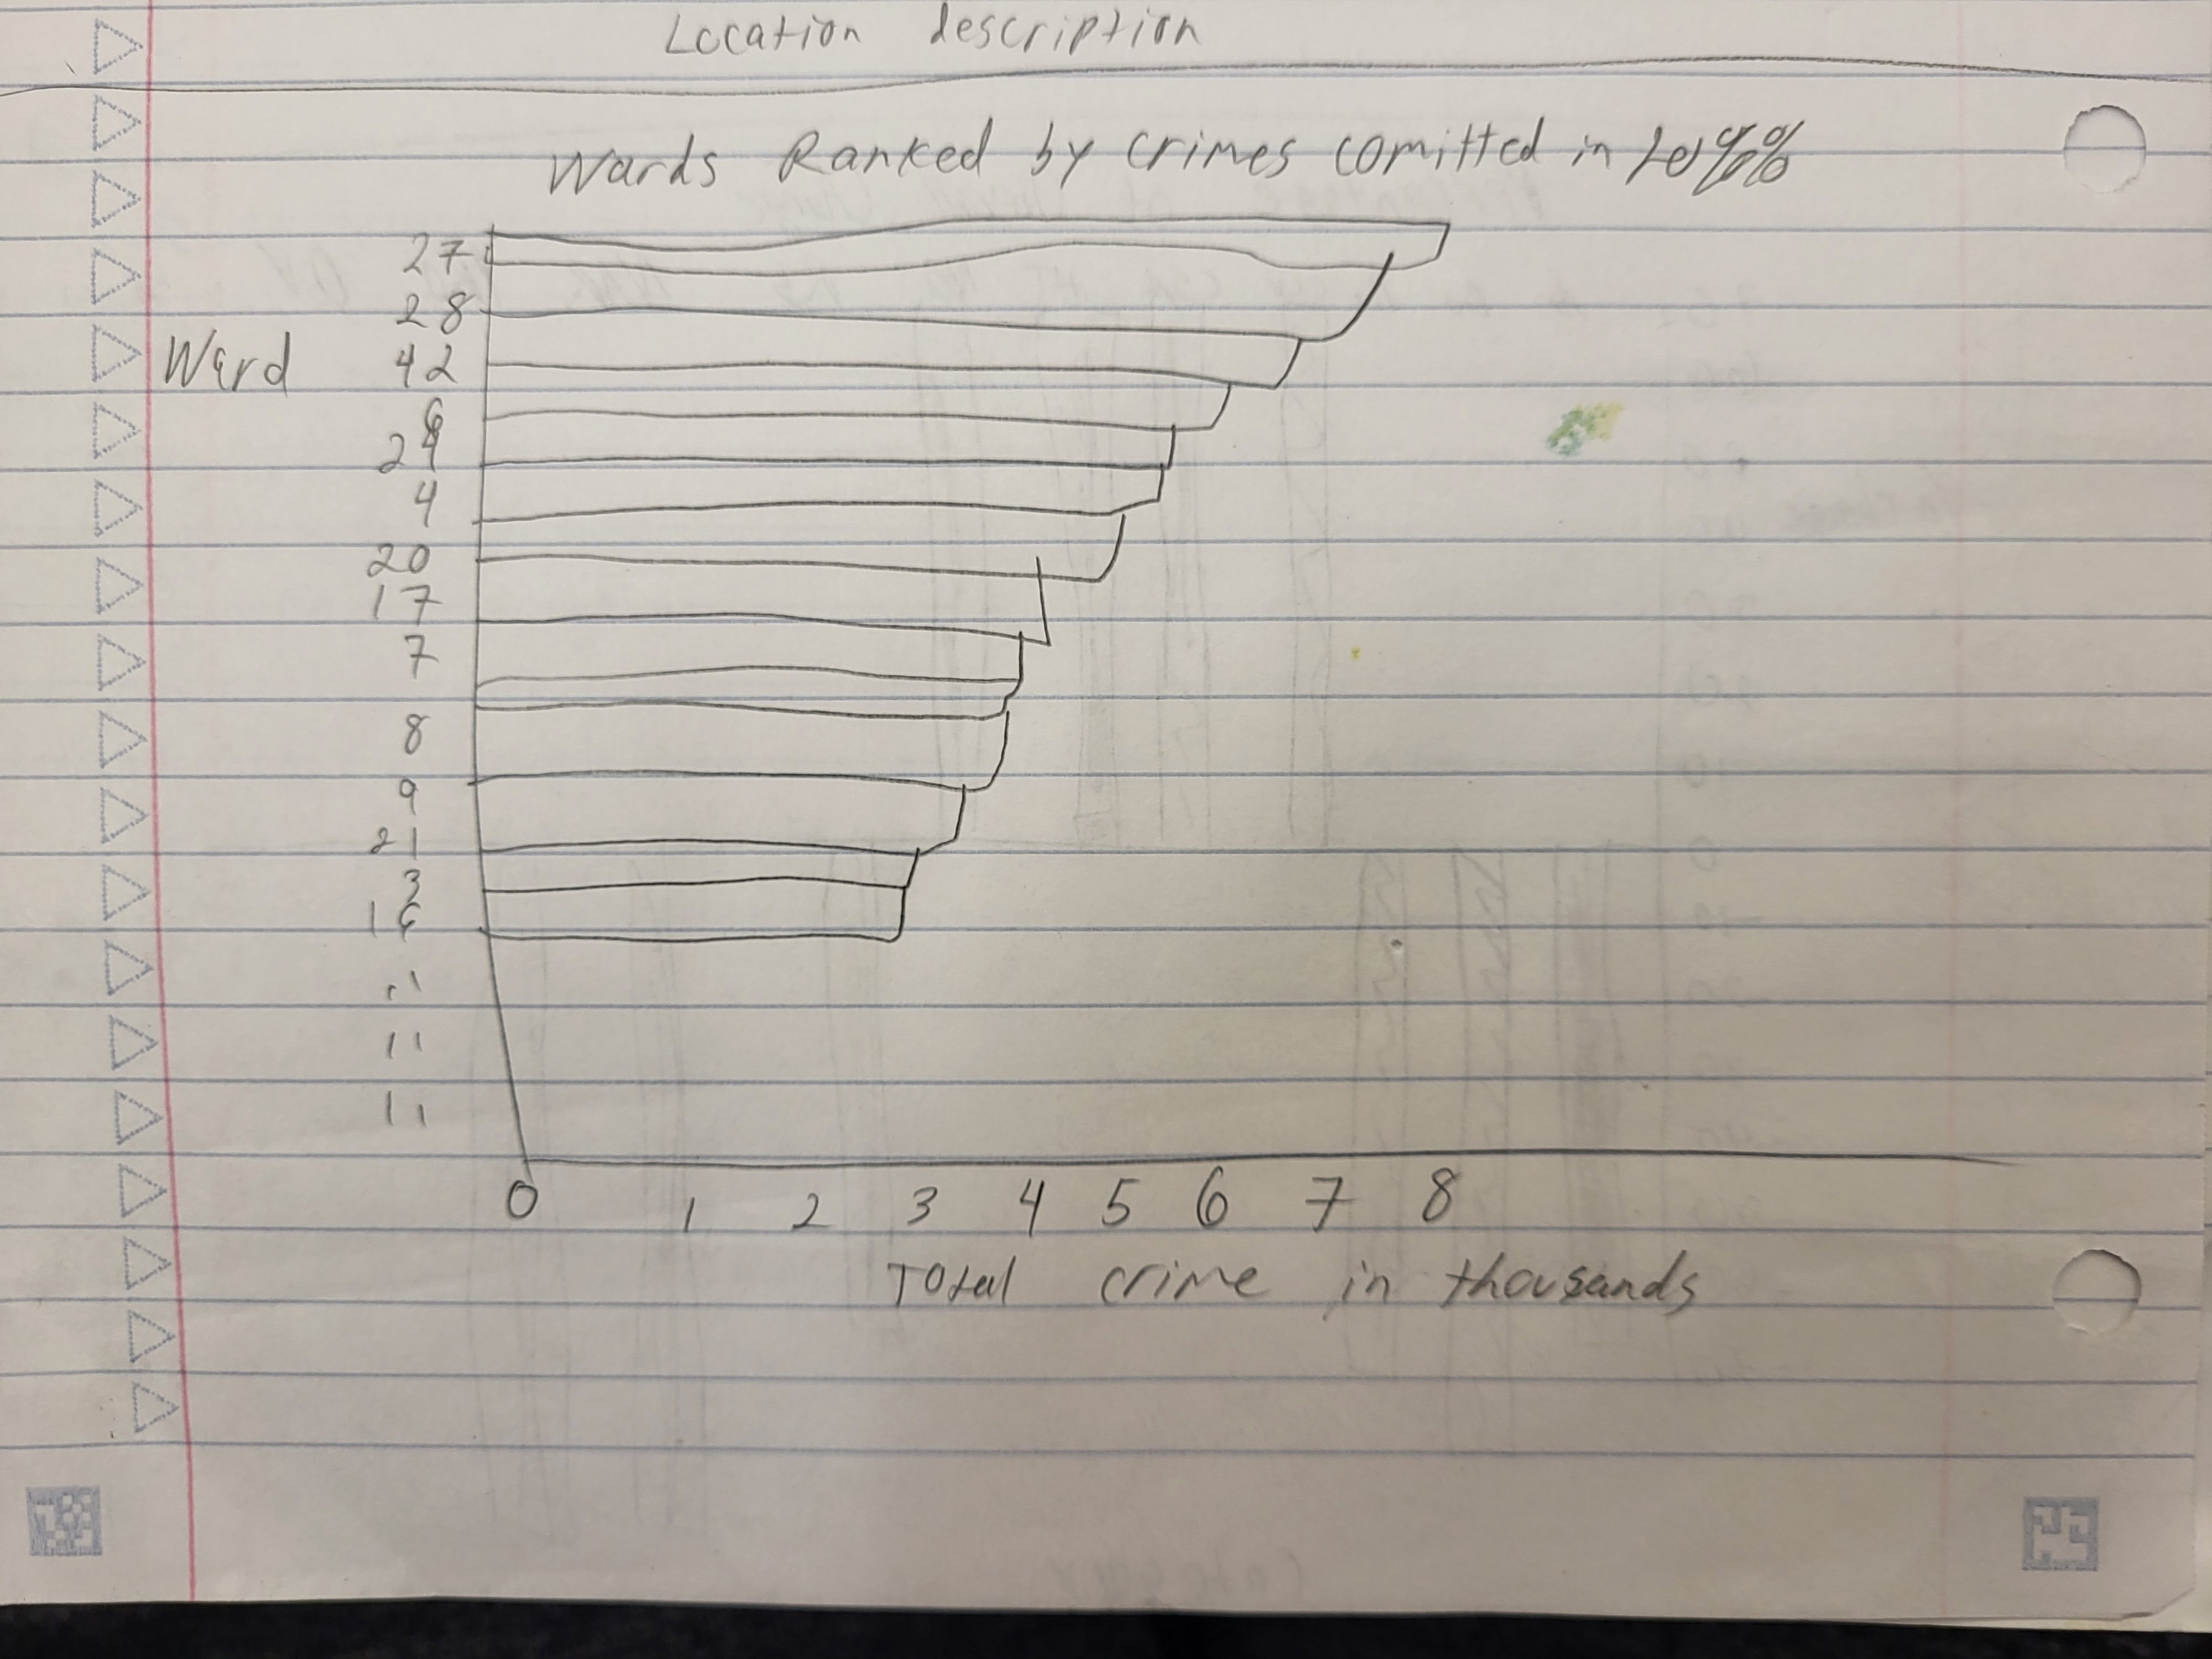 Location description
Wards Ranked by crimes comitted in
27
28
Ward 42
6
24
4
20
17
7
8
9
21
3
16
11
11
11
0 1 2 3 4 5 6 7 8
Total crime in thousands